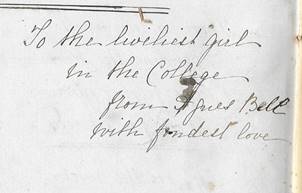 To the liveliest girl
in the College
from Agnes Bell
with fondest love